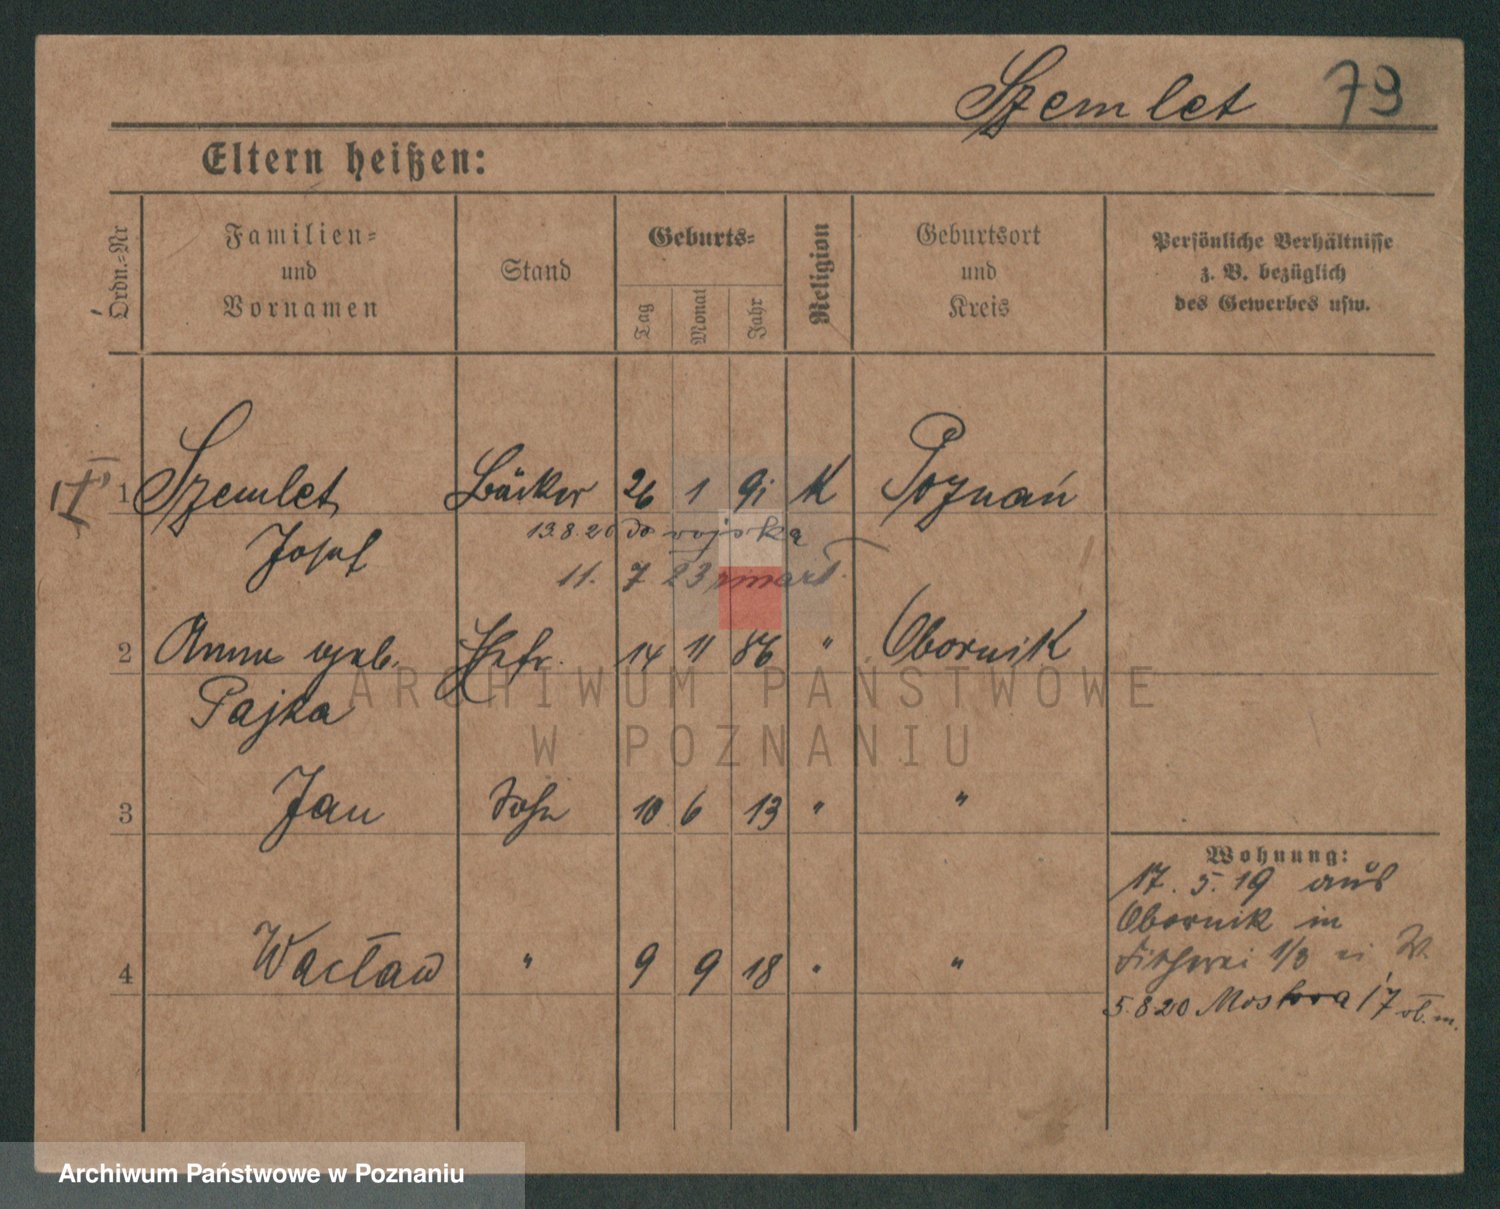 Szemlet 79
Eltern heißen:
Ordn.-Nr
Familien-
und
Vornamen
Stand
Geburts-
Tag
Monat
Jahr
Religion
Geburtsort
und
Kreis
Persönliche Verhältnisse
z. B. bezüglich
des Gewerbes usw.
1 Szemlet Bäcker 26 1 91 K Poznań
Josef
13.8.20 do wojska
11. 7 23 zmarł.
2 Anna geb. Ehefr. 14 11 86 " Obornik
Pajka
3 Jan Sohn 10 6 13 " "
4 Wacław " 9 9 18 " "
Wohnung:
17. 5. 19 aus
Obornik in
Fischerei 1/3
5.8.20 Mostowa 17
ARCHIWUM PAŃSTWOWE
W POZNANIU
Archiwum Państwowe w Poznaniu